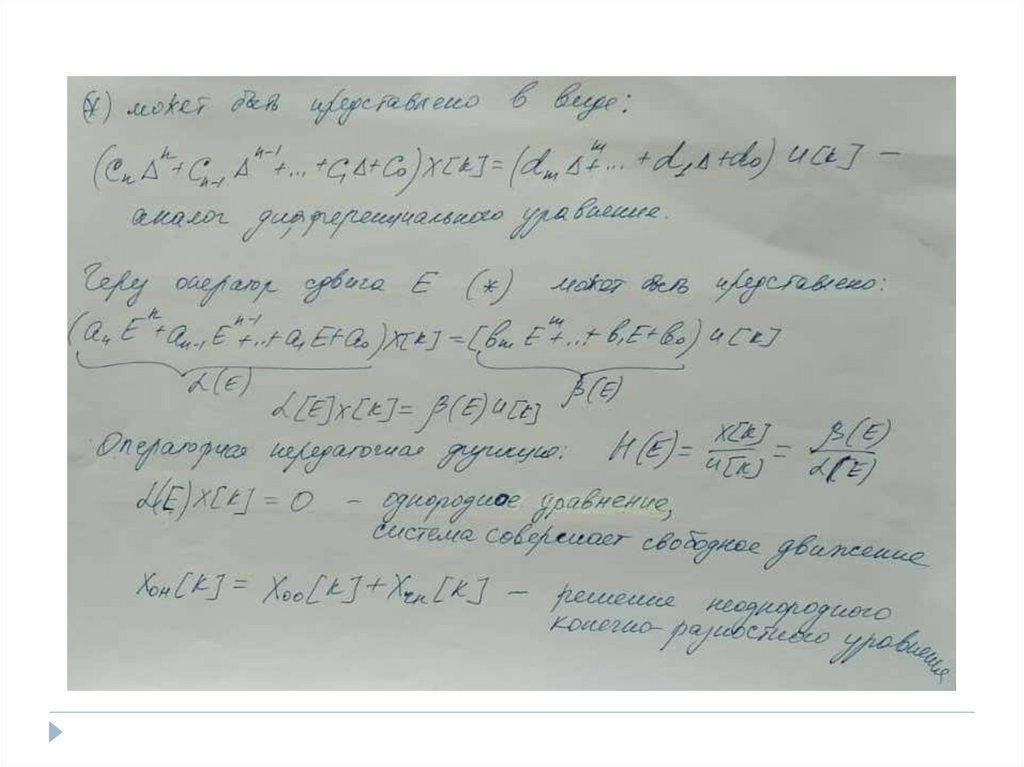 (*) может быть представлено в виде:
(CₙΔⁿ+Cₙ₋₁Δⁿ⁻¹+...+C₁Δ+C₀)X[K]=(dₘΔᵐ+...+d₁Δ+d₀)U[K] –
аналог дифференциального уравнение.
Через оператор сдвига E (*) может быть представлено:
(aₙEⁿ+aₙ₋₁Eⁿ⁻¹+...+a₁E+a₀)X[K]=[вₘEᵐ+...+в₁E+в₀)U[K]
α(E) β(E)
α[E]X[K]=β(E)U[K]
Операторная передаточная функция: H(E)=X[K]/U[K]=β(E)/α(E)
α(E)X[K]=0 – однородное уравнение,
система совершает свободное движение
Xон[K]=Xоо[K]+Xчн[K] – решение неоднородного
конечно-разностного уравнения